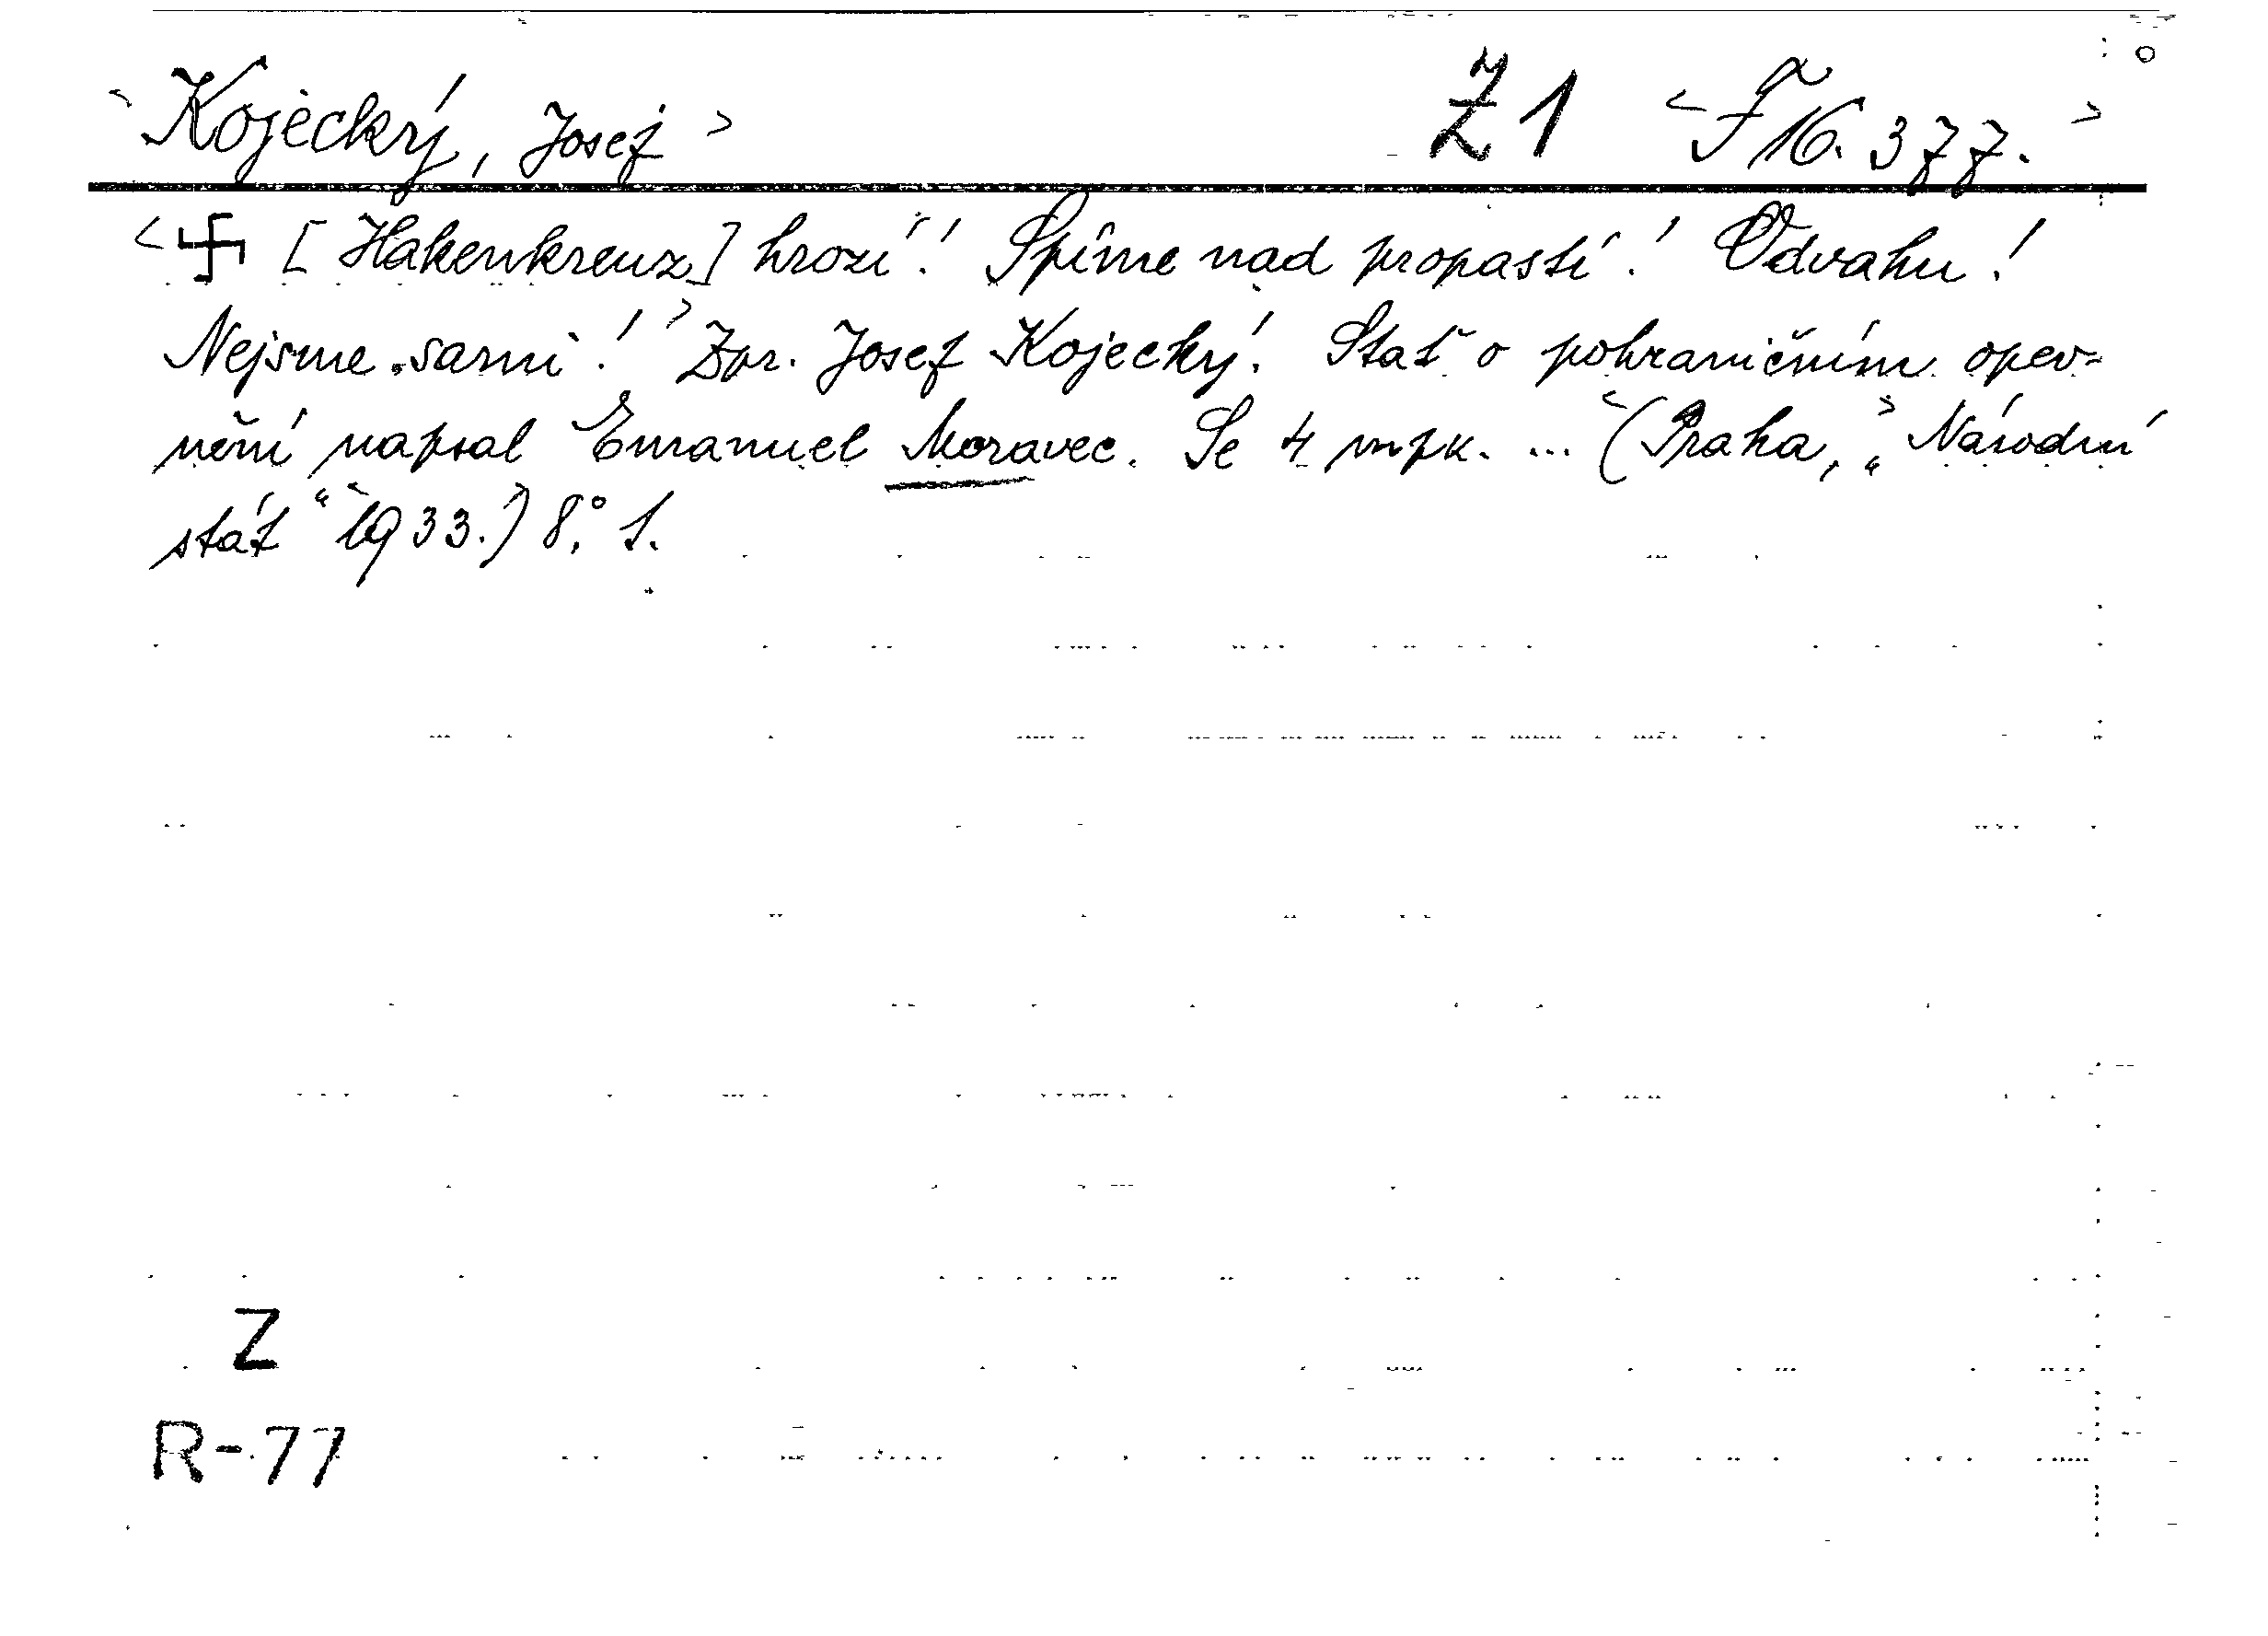 <Kojecký, Josef> Ž1 <F 16.377.>
<卐 [Hakenkreuz] hrozí! Spíme nad propastí! Odvahu!
Nejsme sami!> Zpr. Josef Kojecký. Stať o pohraničním opev=
nění napsal Emanuel Moravec. Se 4 mpk. ... <(Praha,> „Národní
stát“ <1933.) 8.° 1.
Z
R-77